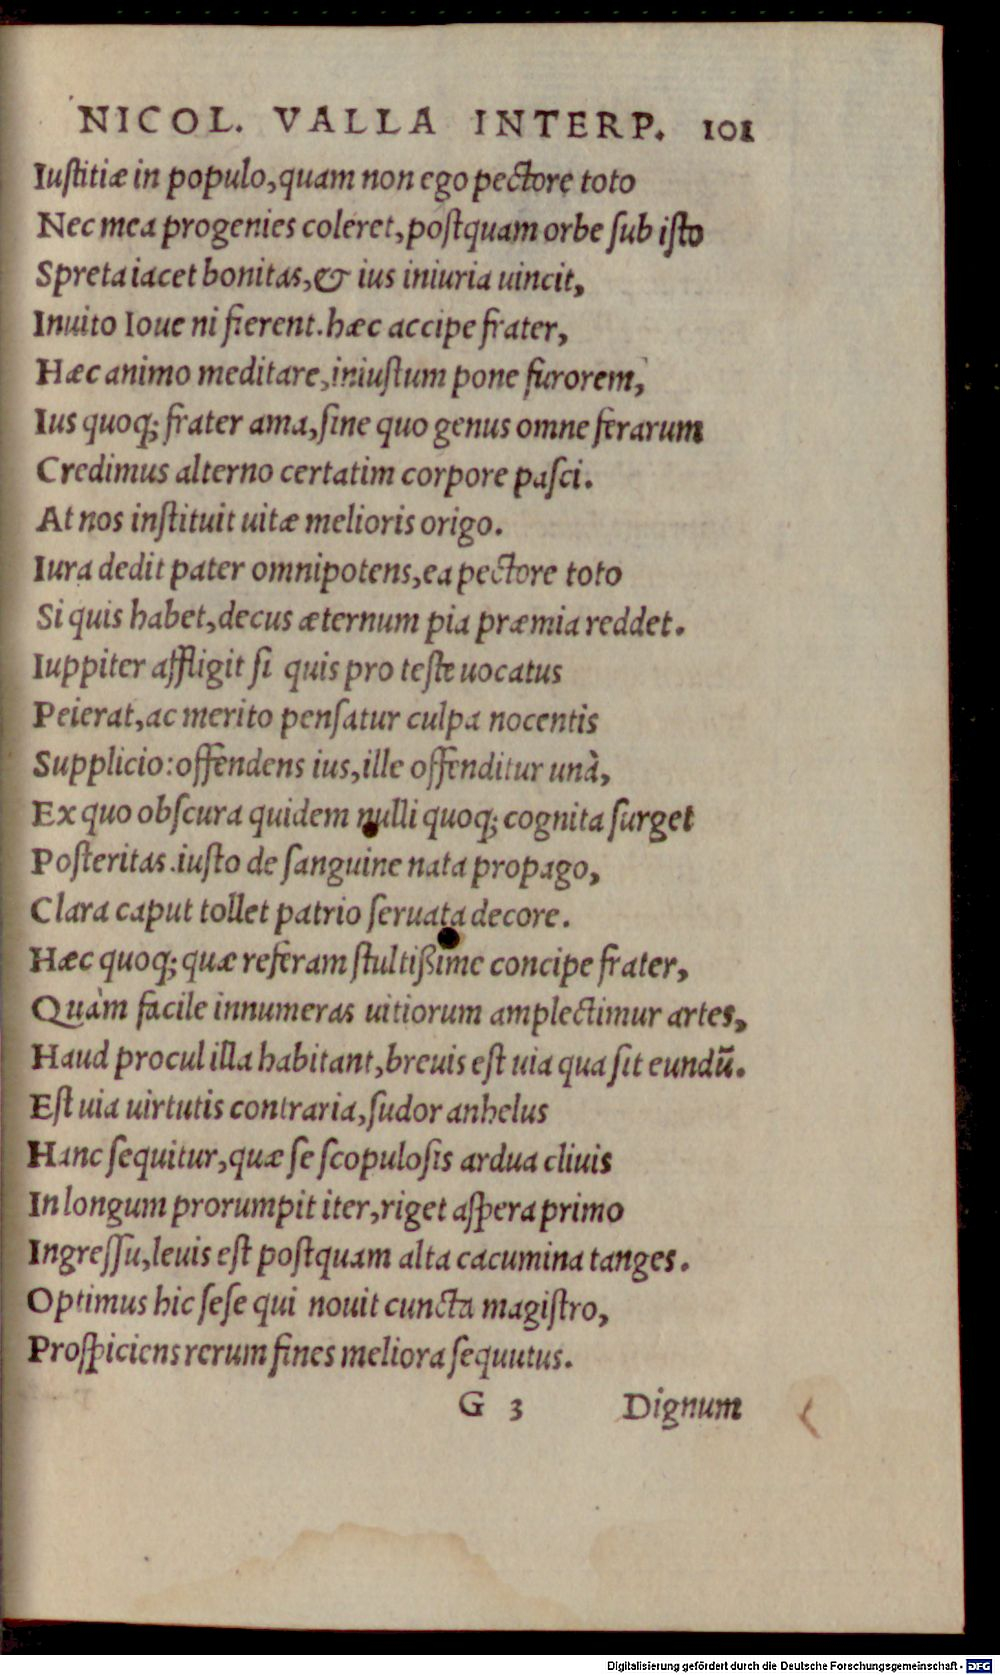 NICOL. VALLA INTERP. 101
Iustitiæ in populo, quam non ego pectore toto
Nec mea progenies coleret, postquam orbe sub isto
Spreta iacet bonitas, & ius iniuria uincit,
Inuito Ioue ni fierent. hæc accipe frater,
Hæc animo meditare, iniustum pone furorem,
Ius quoq; frater ama, sine quo genus omne ferarum
Credimus alterno certatim corpore pasci.
At nos instituit uitæ melioris origo.
Iura dedit pater omnipotens, ea pectore toto
Si quis habet, decus æternum pia præmia reddet.
Iuppiter affligit si quis pro teste uocatus
Peierat, ac merito pensatur culpa nocentis
Supplicio: offendens ius, ille offenditur unà,
Ex quo obscura quidem nulli quoq; cognita surget
Posteritas. iusto de sanguine nata propago,
Clara caput tollet patrio seruata decore.
Hæc quoq; quæ referam stultißime concipe frater,
Quàm facile innumeras uitiorum amplectimur artes,
Haud procul illa habitant, breuis est uia qua sit eundũ.
Est uia uirtutis contraria, sudor anhelus
Hanc sequitur, quæ se scopulosis ardua cliuis
In longum prorumpit iter, riget aspera primo
Ingressu, leuis est postquam alta cacumina tanges.
Optimus hic sese qui nouit cuncta magistro,
Prospiciens rerum fines meliora sequutus.
G 3 Dignum
Digitalisierung gefördert durch die Deutsche Forschungsgemeinschaft - DFG